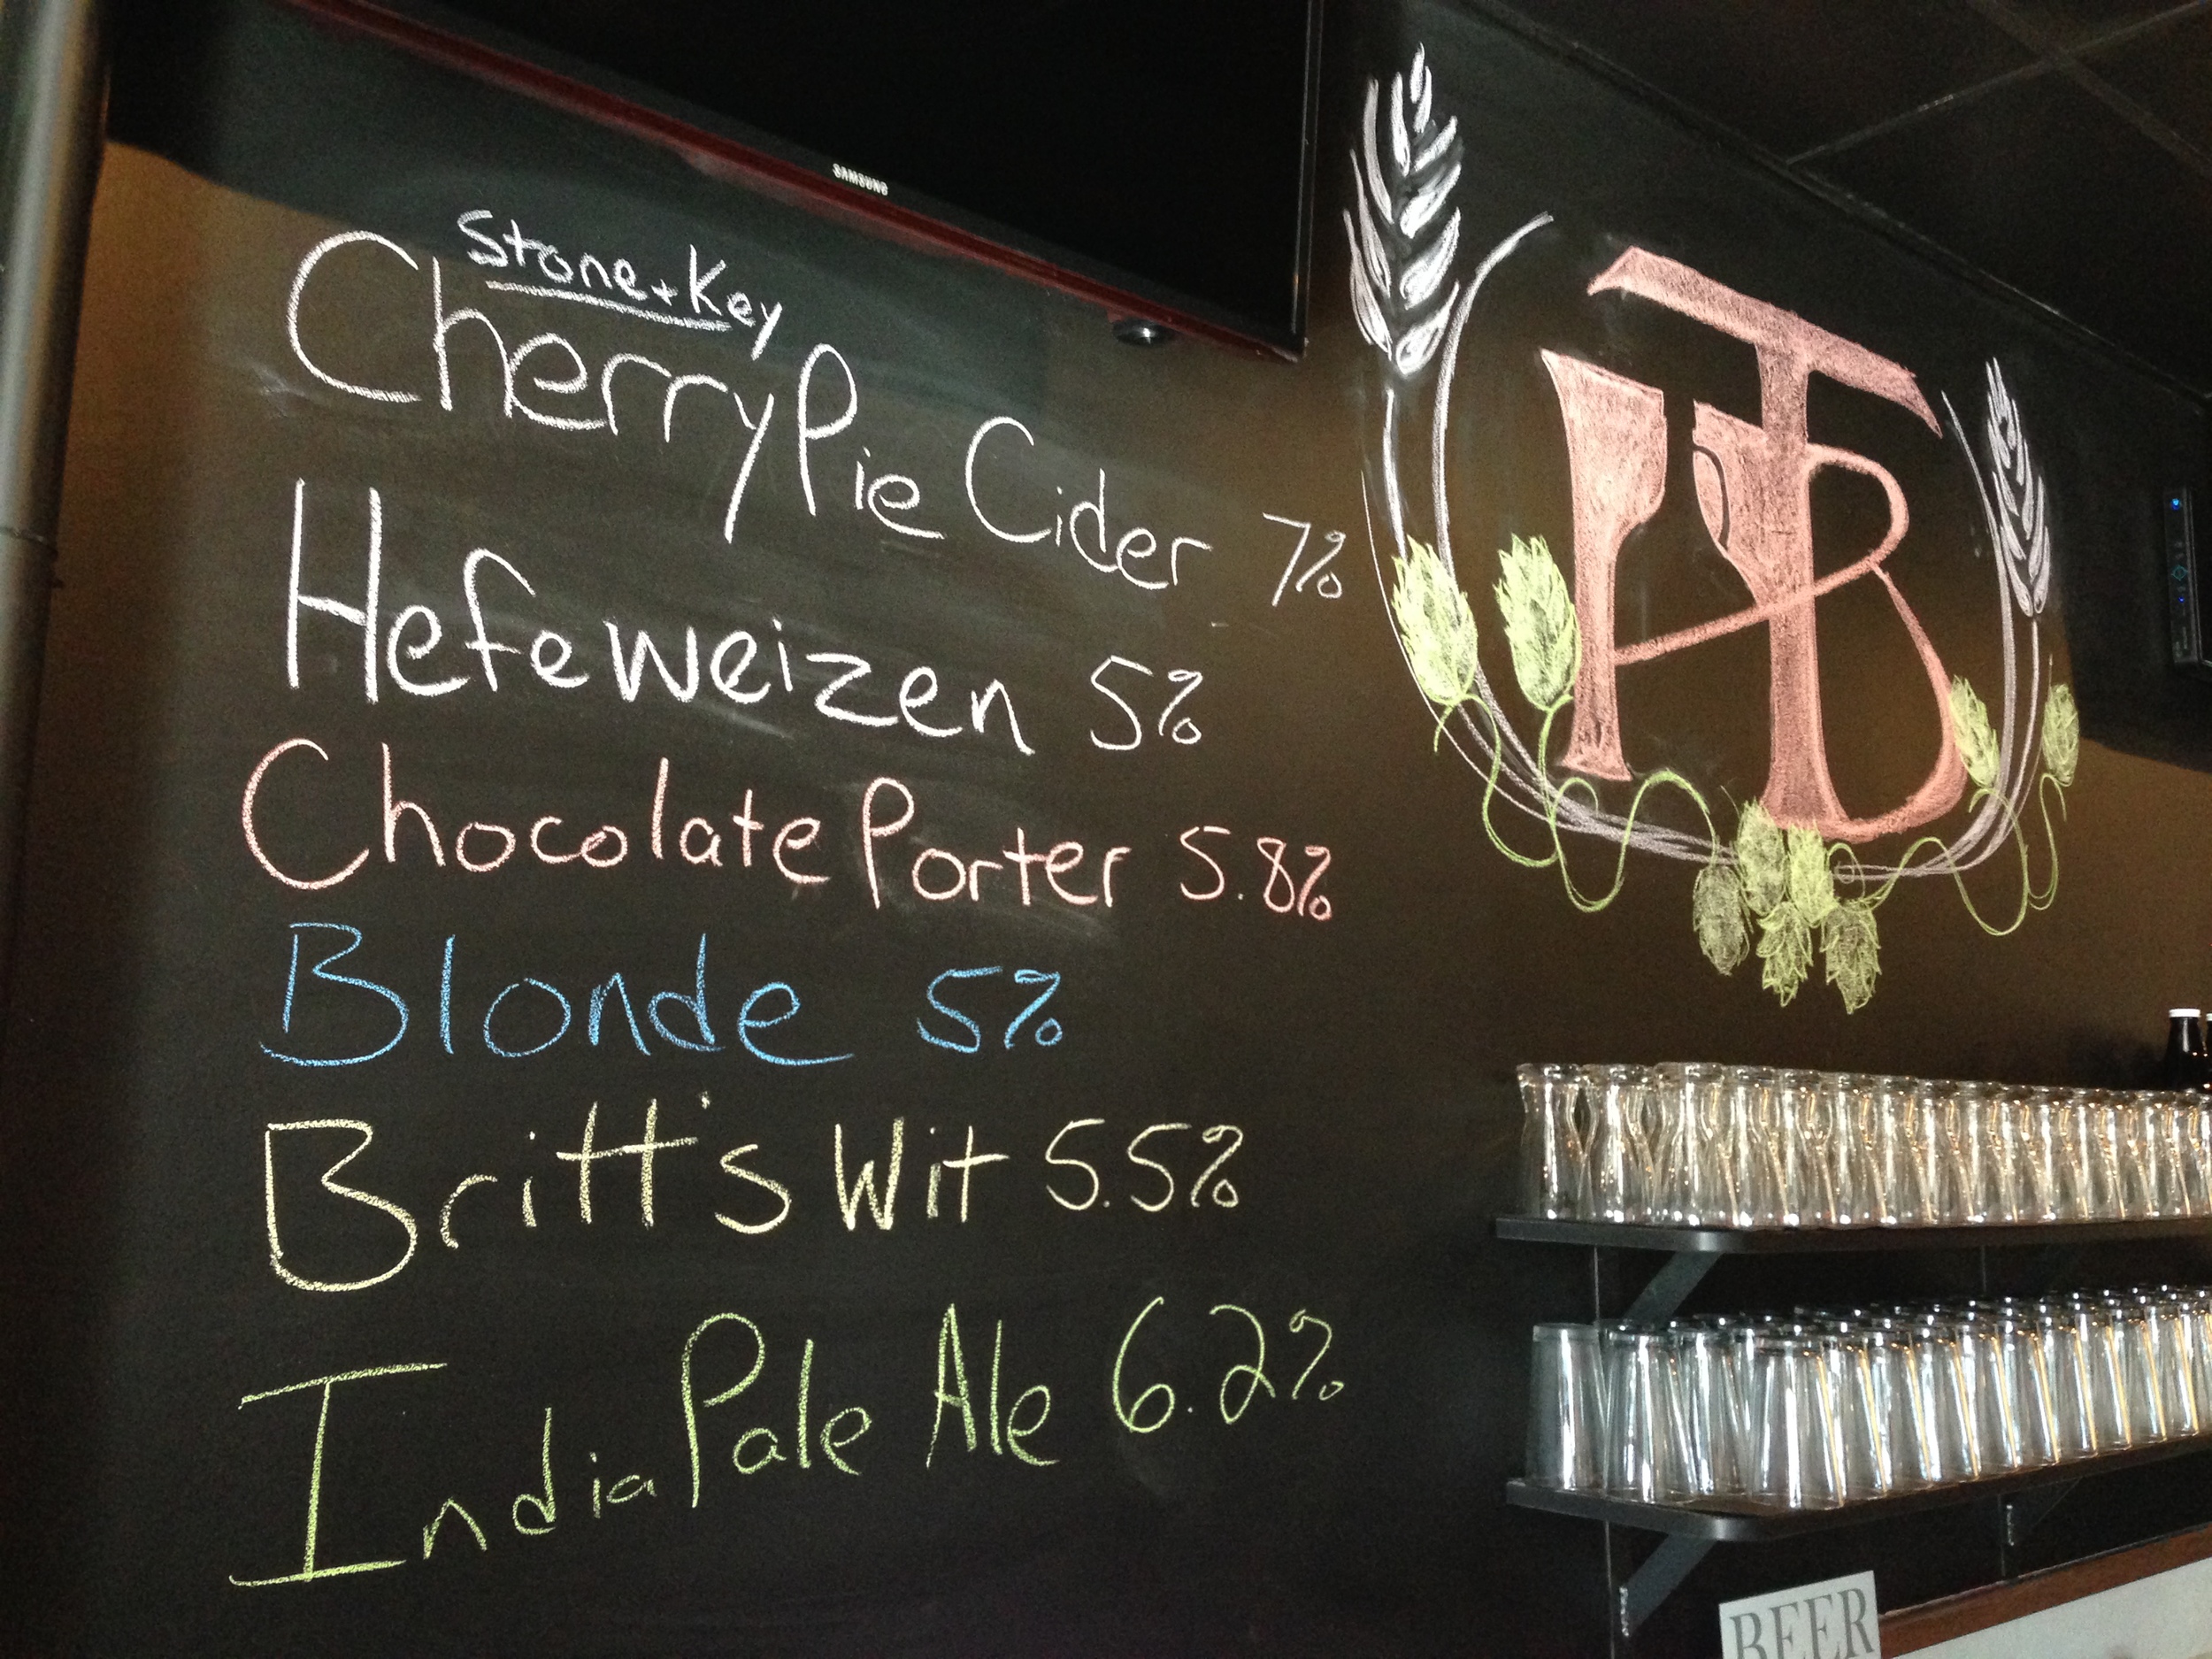 SAMSUNG
Stone + Key
Cherry Pie Cider 7%
Hefeweizen 5%
Chocolate Porter 5.8%
Blonde 5%
Britt's Wit 5.5%
India Pale Ale 6.2%
HTB
BEER